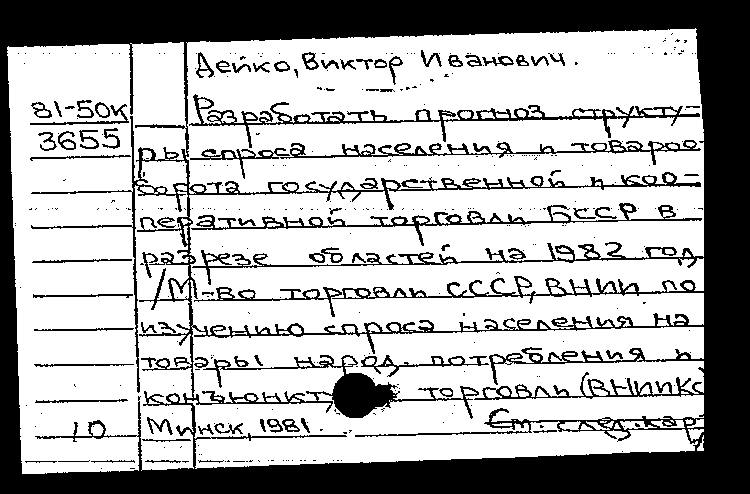 Дейко, Виктор Иванович.
81-50К Разработать прогноз структу-
3655 ры спроса населения и товароо-
борота государственной и коо-
перативной торговли БССР в
разрезе областей на 1982 год
/М-во торговли СССР, ВНИИ по
изучению спроса населения на
товары народ. потребления и
конъюнкт торговли (ВНИИКС
10 Минск, 1981. См. след. кар